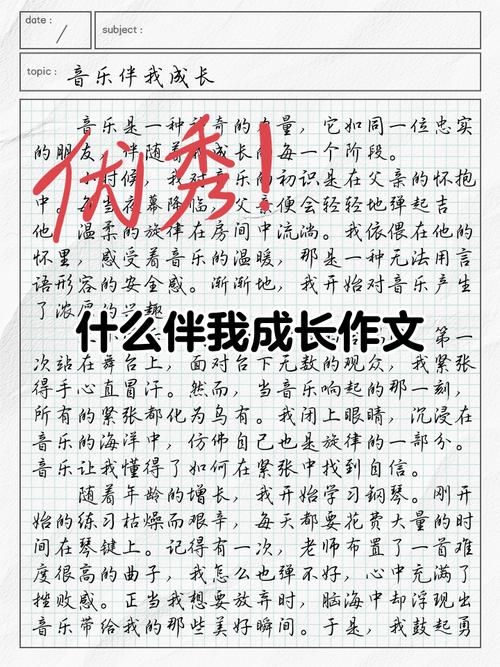 date :
subject :
topic : 音乐伴我成长
音乐是一种神奇的力量，它如同一位忠实
的朋友，伴随着我成长的每一个阶段。
小时候，我对音乐的初识是在父亲的怀抱
中。每当夜幕降临，父亲便会轻轻地弹起吉
他，温柔的旋律在房间中流淌。我依偎在他的
怀里，感受着音乐的温暖，那是一种无法用言
语形容的安全感。渐渐地，我开始对音乐产生
了浓厚的兴趣
优秀！
什么伴我成长作文
第一
次站在舞台上，面对台下无数的观众，我紧张
得手心直冒汗。然而，当音乐响起的那一刻，
所有的紧张都化为乌有。我闭上眼睛，沉浸在
音乐的海洋中，仿佛自己也是旋律的一部分。
音乐让我懂得了如何在紧张中找到自信。
随着年龄的增长，我开始学习钢琴。刚开
始的练习枯燥而艰辛，每天都要花费大量的时
间在琴键上。记得有一次，老师布置了一首难
度很高的曲子，我怎么也弹不好，心中充满了
挫败感。正当我想要放弃时，脑海中却浮现出
音乐带给我的那些美好瞬间。于是，我鼓起勇